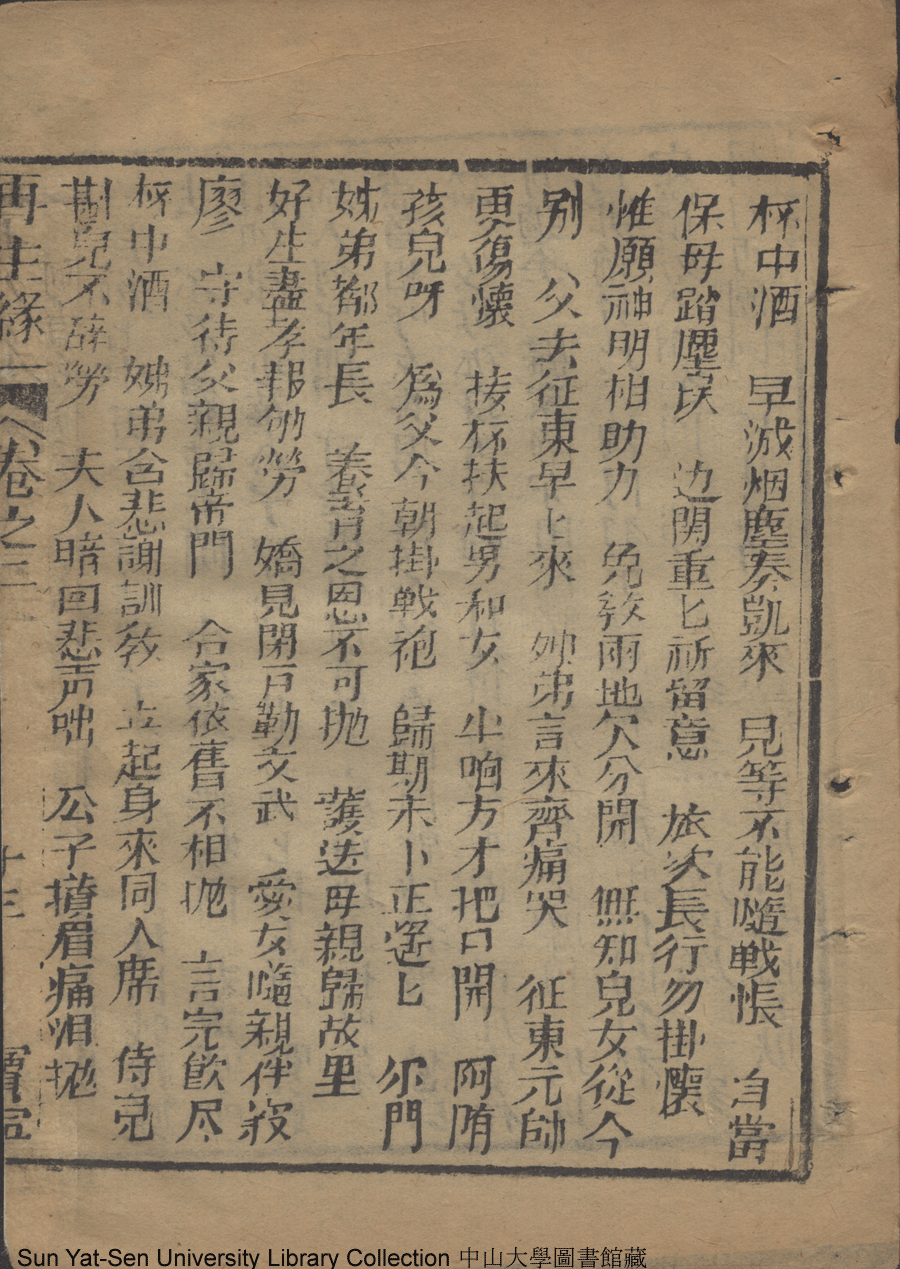 杯中酒　早滅烟塵奏凱來　兒等不能隨戰悵　自當
保母踏塵埃　边関重匕祈留意　旅次長行勿掛懷
惟願神明相助力　免敎兩地欠分開　無知兒女從今
别　父去征東早匕來　姉弟言來齊痛哭　征東元帥
更傷懷　接杯扶起男和女　半晌方才把口開　阿
孩兒呀　爲父今朝掛戰袍　歸期未卜正遥匕　尔門
姊弟都年長　養育之恩不可抛　護送母親歸故里
好生盡孝報劬勞　嬌兒閉戸勤文武　愛女隨親伴寂
廖　守待父親歸帝門　合家依舊不相抛　言完飮尽
杯中酒　姊弟含悲謝訓敎　立起身來同入席　侍兒
斟　兒不辞勞　夫人暗回悲声咄　公子攢眉痛泪抛
再生緣　卷之三　十三　寳寧
Sun Yat-Sen University Library Collection 中山大學圖書館藏